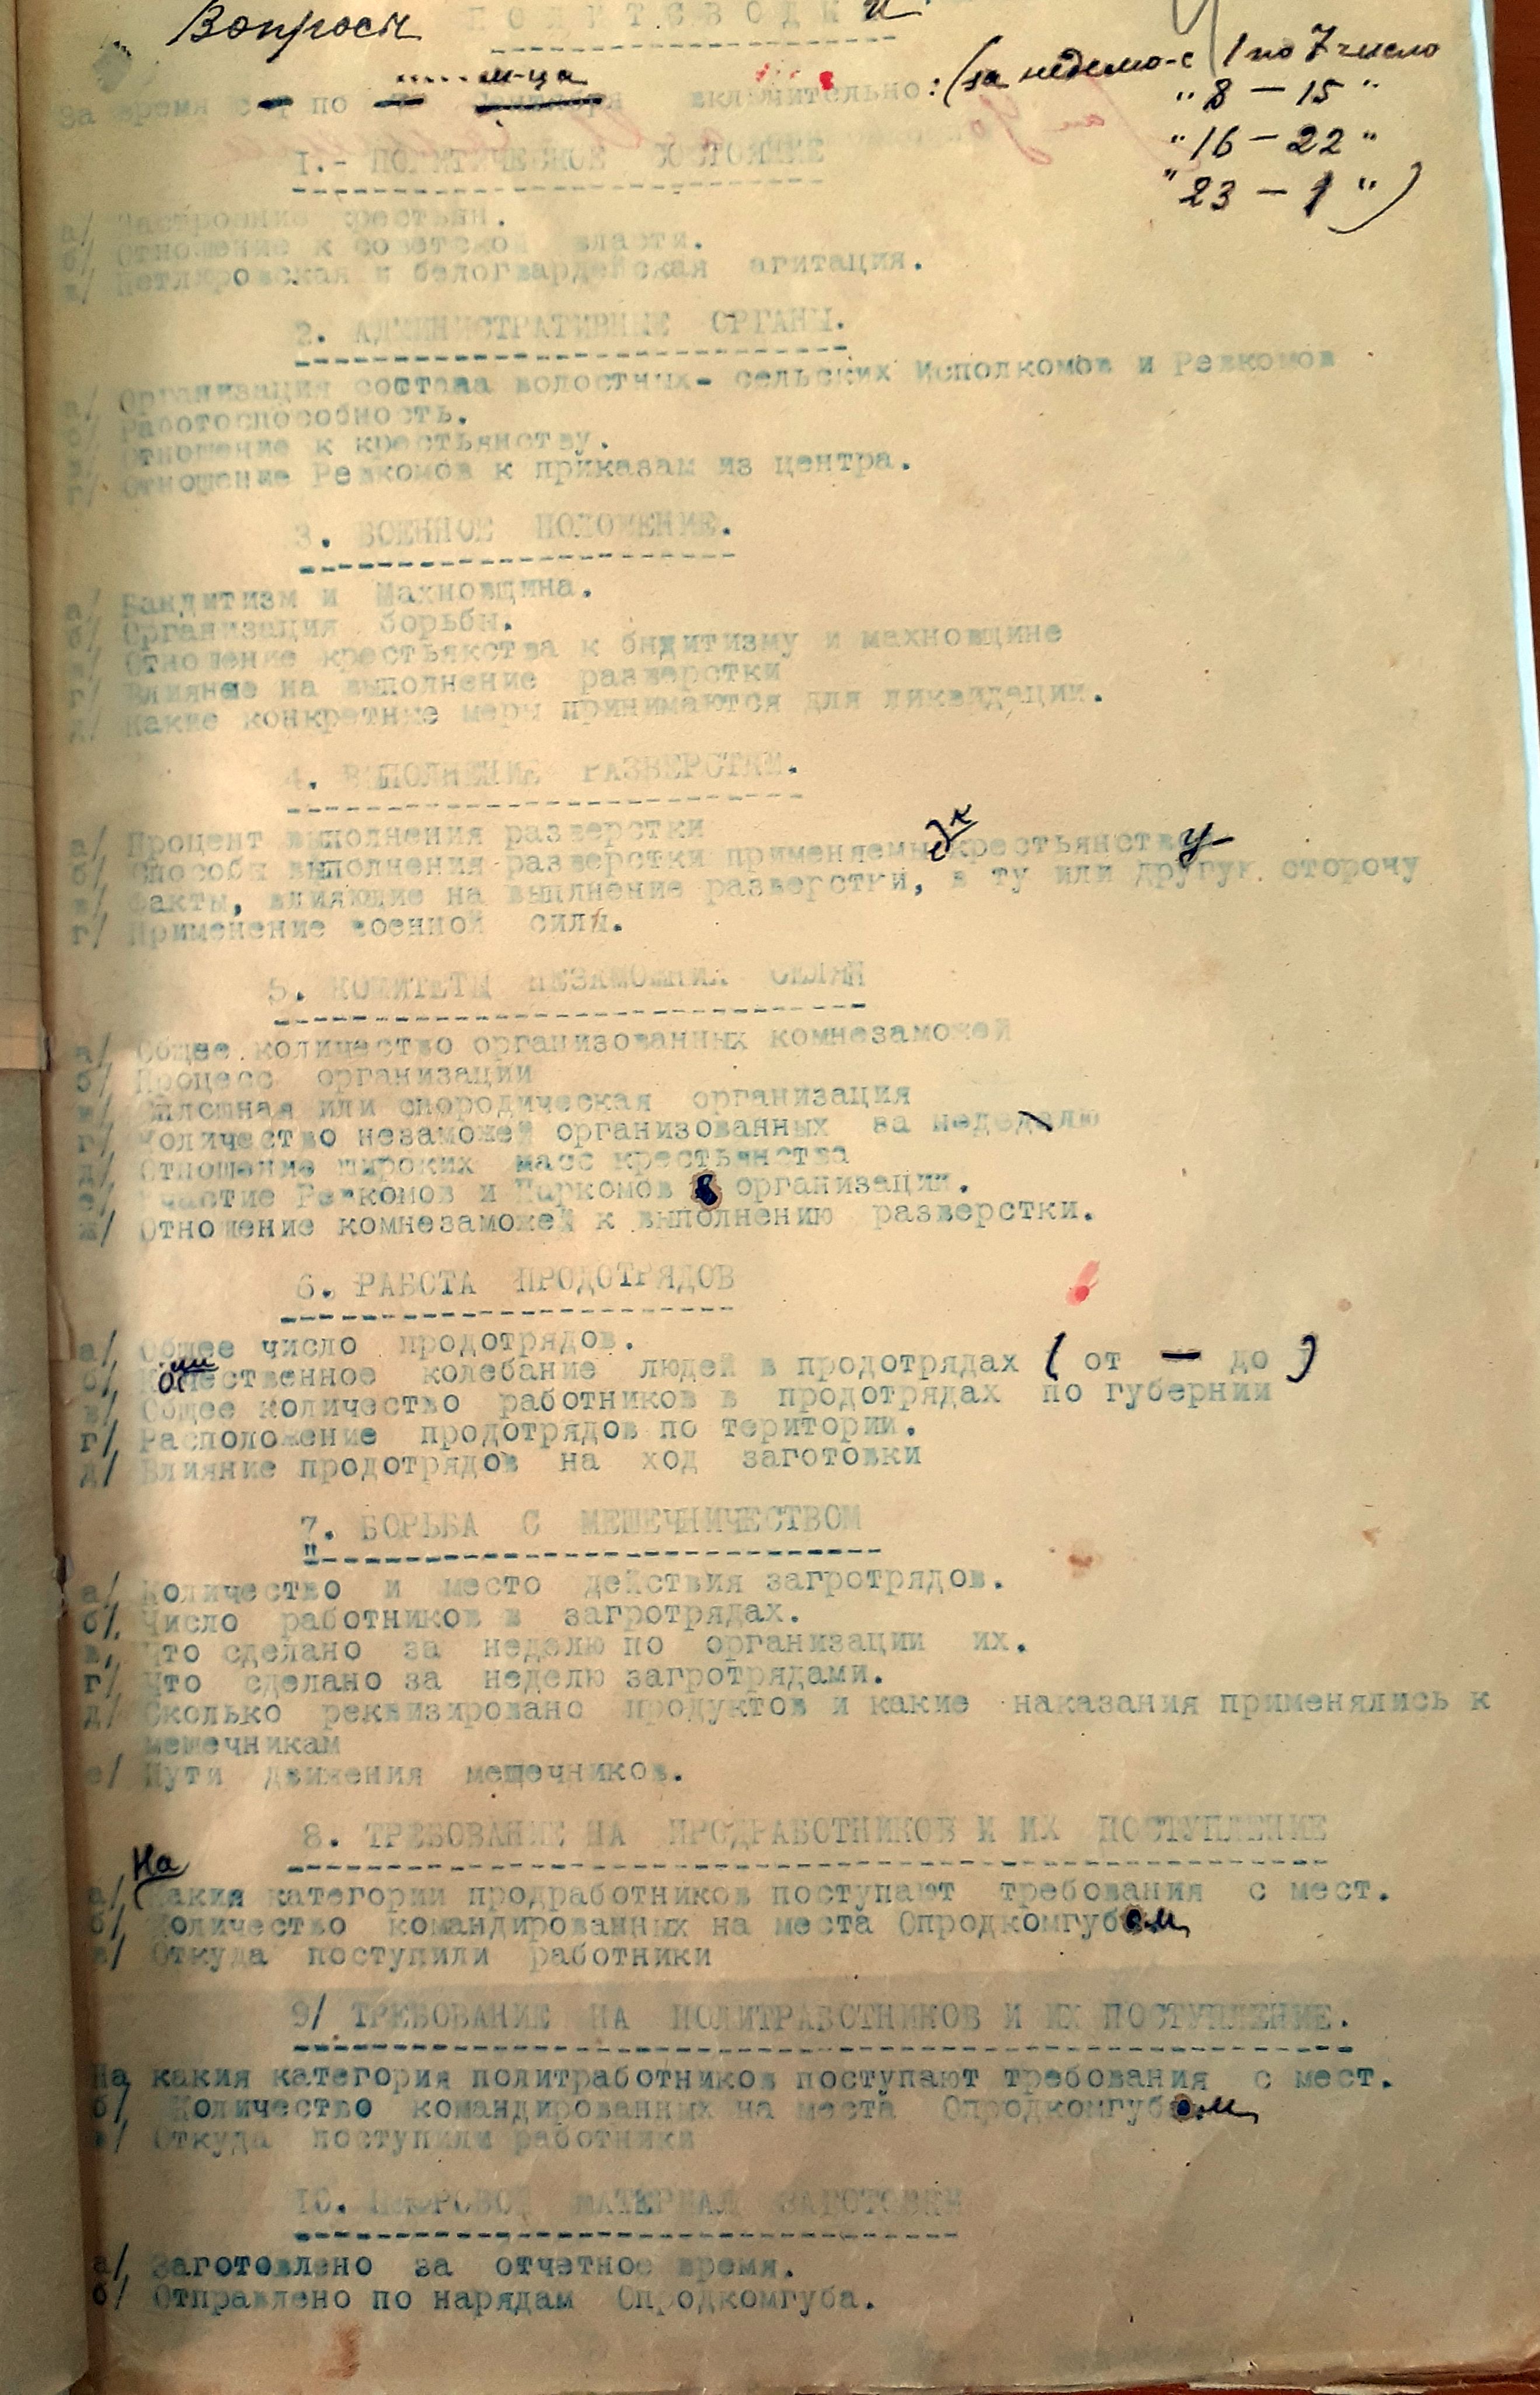 Вопросы ПОЛИТСВОДКИ
(за неделю-с 1 по 7 число
м-ца
За время с по включительно:
" 8 — 15 "
" 16 — 22 "
" 23 — 1 ")
I.- ПОЛИТИЧЕСКОЕ СОСТОЯНИЕ
а/ Настроение крестьян.
б/ Отношение к советской власти.
в/ Петлюровская и белогвардейская агитация.
2. АДМИНИСТРАТИВНЫЕ ОРГАНЫ.
а/ Организация состава волостных- сельских Исполкомов и Ревкомов
б/ Работоспособность.
в/ Отношение к крестьянству.
г/ Отношение Ревкомов к приказам из центра.
3. ВОЕННОЕ ПОЛОЖЕНИЕ.
а/ Бандитизм и Махновщина.
б/ Организация борьбы.
в/ Отношение крестьянства к бндитизму и махновщине
г/ Влияные на выполнение разверстки
д/ Какие конкретные меры принимаются для ликвидации.
4. ВЫПОЛНЕНИЕ РАЗВЕРСТКИ.
а/ Процент выполнения разверстки
б/ Способы выполнения разверстки применяемые к крестьянству
в/ Факты, влияющие на выплнение разверстки, в ту или другую сторочу
г/ Применение военной силы.
5. КОМИТЕТЫ НЕЗАМОЖНИХ СЕЛЯН
а/ Общее количество организованных комнезаможей
б/ Процесс организации
в/ Сплошная или спородическая организация
г/ Количество незаможей организованных за неделю
д/ Отношение широких масс крестьянства
е/ Участие Ревкомов и Паркомов в организации.
ж/ Отношение комнезаможей к выполнению разверстки.
6. РАБОТА ПРОДОТРЯДОВ
а/ Общее число продотрядов.
б/ Количественное колебание людей в продотрядах ( от — до )
в/ Общее количество работников в продотрядах по губернии
г/ Расположение продотрядов по територии.
д/ Влияние продотрядов на ход заготовки
7. БОРЬБА С МЕШЕЧНИЧЕСТВОМ
а/ Количество и место действия загротрядов.
б/. Число работников в загротрядах.
в, Что сделано за неделю по организации их.
г/ Что сделано за неделю загротрядами.
д/ Сколько реквизировано продуктов и какие наказания применялись к
мешечникам
е/ Пути движения мешечников.
8. ТРЕБОВАНИЕ НА ПРОДРАБОТНИКОВ И ИХ ПОСТУПЛЕНИЕ
На
а/ какия категории продработников поступают требования с мест.
б/ Количество командированных на места Опродкомгубом
в/ Откуда поступили работники
9/ ТРЕБОВАНИЕ НА ПОЛИТРАБОТНИКОВ И ИХ ПОСТУПЛЕНИЕ.
На какия категория политработников поступают требования с мест.
б/ Количество командированных на места Опродкомгубом
в/ Откуда поступили работники
10. ЦИФРОВОЙ МАТЕРИАЛ ЗАГОТОВКИ
а/ Заготовлено за отчетное время.
б/ Отправлено по нарядам Опродкомгуба.